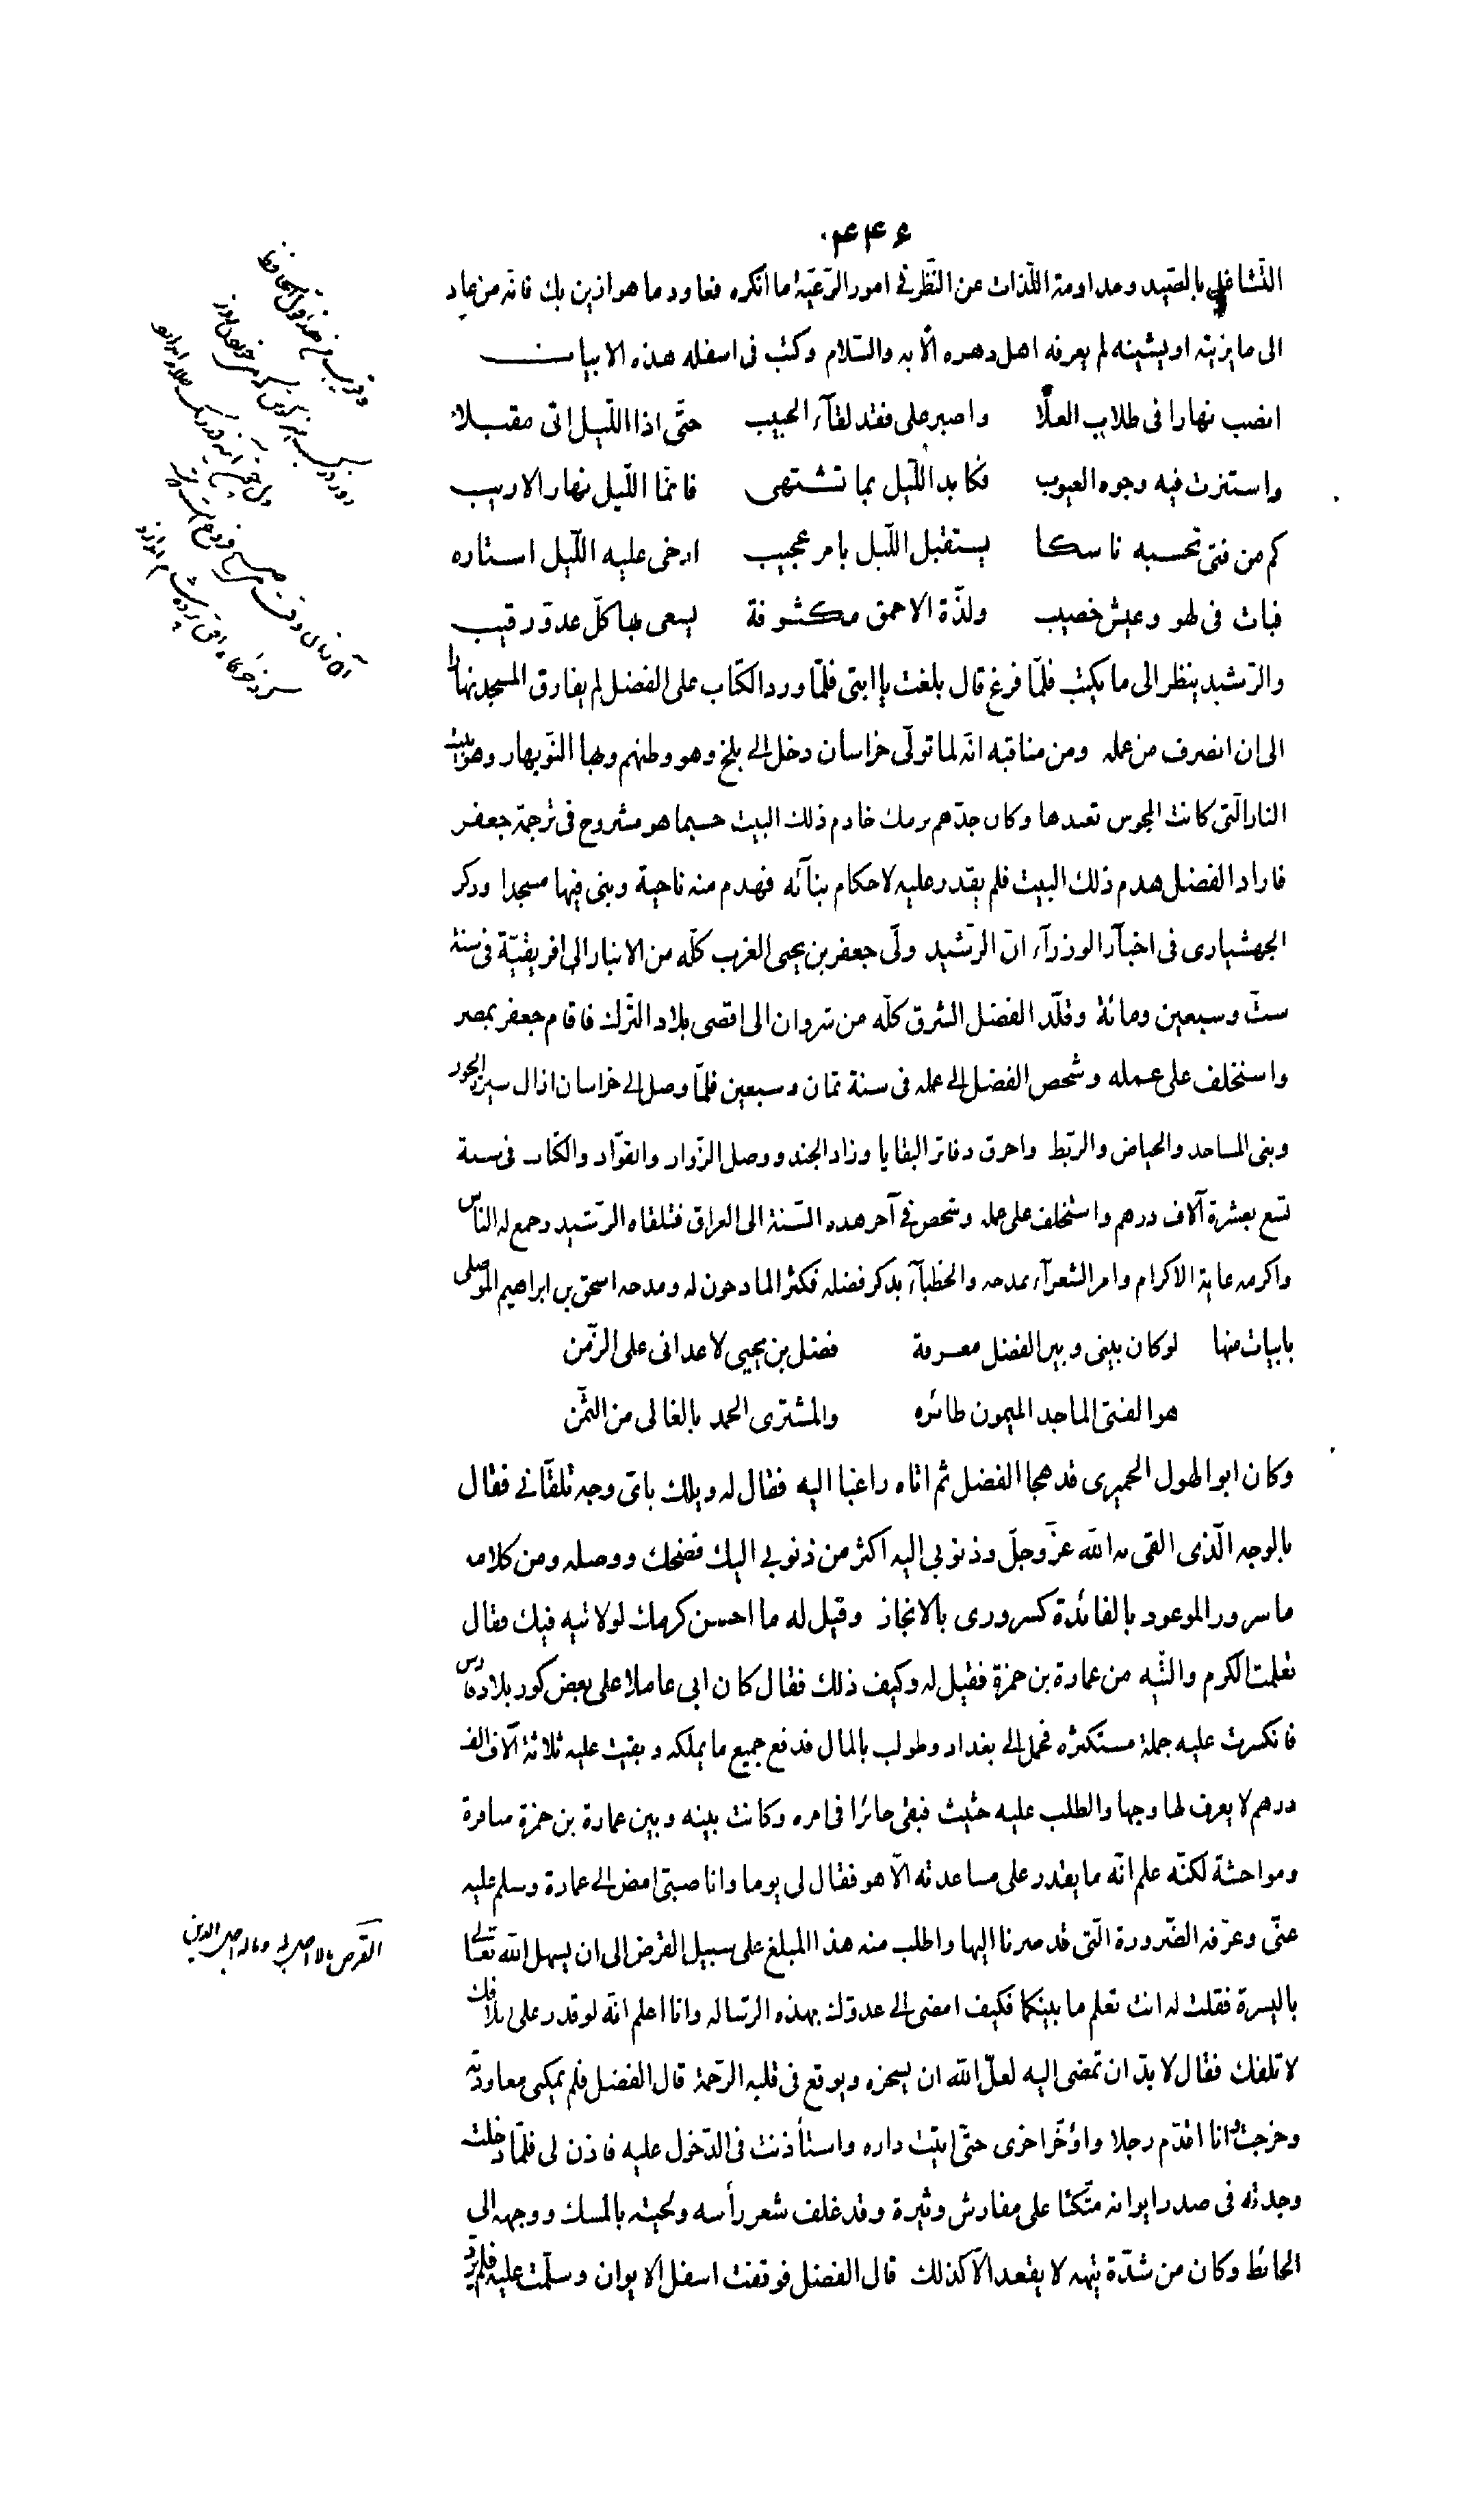 ۴۴۶
التّشاغل بالصّيد ومداومة اللّذات عن النّظر فى امور الرّعيّة ما انكره فعاود ما هو ازين بك فانّه من عاد
الى ما يزينه او يشينه لم يعرفه اهل دهره الّا به والسّلام وكتب فى اسفله هذه الابيات
انصب نهارا فى طلاب العلا واصبر على فقد لقآء الحبيب حتّى اذا اللّيل اتى مقبلا
واستترت فيه وجوه العيوب فكابد اللّيل بما تشتهى فانّما اللّيل نهار الاريب
كم من فتى تحسبه ناسكا يستقبل اللّيل بامر عجيب ارخى عليه اللّيل استاره
فبات فى لهو وعيش خصيب ولذّة الاحمق مكشوفة يسعى بها كلّ عدوّ رقيب
والرّشيد ينظر الى ما يكتب فلمّا فرغ قال بلغت يا ابتى فلمّا ورد الكتاب على الفضل لم يفارق المسجد نهارا
الى ان انصرف من عمله ومن مناقبه انّه لما تولّى خراسان دخل الى بلخ وهو وطنهم وبها النّوبهار وهو بيت
النار الّتى كانت المجوس تعبدها وكان جدّهم برمك خادم ذلك البيت حسبما هو مشروح فى ترجمة جعفر
فاراد الفضل هدم ذلك البيت فلم يقدر عليه لاحكام بنآئه فهدم منه ناحية وبنى فيها مسجدا وذكر
الجهشيارى فى اخبار الوزرآء انّ الرّشيد ولّى جعفر بن يحيى الغرب كلّه من الانبار الى افريقيّة فى سنة
ستّ وسبعين ومائة وقلّد الفضل الشرق كلّه من شروان الى اقصى بلاد التّرك فاقام جعفر بمصر
واستخلف على عمله وشخص الفضل الى عمله فى سنة ثمان وسبعين فلمّا وصل الى خراسان ازال سيرة الجور
وبنى المساجد والحياض والرّبط واحرق دفاتر البقايا وزاد الجند ووصل الزّوار والقوّاد والكتّاب فى سنة
تسع بعشرة آلاف درهم واستخلف على عمله وشخص فى آخر هذه السّنة الى العراق فتلقاه الرّشيد وجمع له الناس
واكرمه غاية الاكرام وامر الشعرآء بمدحه والخطبآء بذكر فضله فكثر المادحون له ومدحه اسحق بن ابراهيم الموصلى
بابيات منها لو كان بينى وبين الفضل معرفة فضل بن يحيى لاعدانى على الزّمن
هو الفتى الماجد الميمون طائره والمشترى الحمد بالغالى من الثّمن
وكان ابو الهول الحميرى قد هجا الفضل ثم اتاه راغبا اليه فقال له ويلك باىّ وجه تلقّانى فقال
بالوجه الّذى القى به الله عزّ وجلّ وذنوبى اليه اكثر من ذنوبى اليك فضحك ووصله ومن كلامه
ما سرور الموعود بالفائدة كسرورى بالانجاز وقيل له ما احسن كرمك لولا تيه فيك فقال
تعلمت الكرم والتّيه من عمارة بن حمزة فقيل له وكيف ذلك فقال كان ابى عاملا على بعض كور بلاد فارس
فانكسرت عليه جملة مستكثره فحمل الى بغداد وطولب بالمال فدفع جميع ما يملكه وبقيت عليه ثلاثة آلاف الف
درهم لا يعرف لها وجها والطلب عليه حثيث فبقى حائرا فى امره وكانت بينه وبين عمارة بن حمزة منافرة
ومواحشة لكنّه علم انّه ما يقدر على مساعدته الّا هو فقال لى يوما وانا صبىّ امض الى عمارة وسلم عليه
عنّى وعرّفه الضّرورة الّتى قد صرنا اليها واطلب منه هذا المبلغ على سبيل القرض الى ان يسهل الله تعالى
باليسرة فقلت له انت تعلم ما بينكما فكيف امضى الى عدوّك بهذه الرّسالة وانا اعلم انّه لو قدر على اتلافك
لاتلفك فقال لا بدّ ان تمضى اليه لعلّ الله ان يسخره ويوقع فى قلبه الرّحمة قال الفضل فلم يمكنى معاودته
وخرجت وانا اقدّم رجلا واؤخّر اخرى حتّى اتيت داره واستأذنت فى الدّخول عليه فاذن لى فلمّا دخلت
وجدته فى صدر ايوانه متّكئا على مفارش وثيرة وقد غلف شعر رأسه ولحيته بالمسك ووجهه الى
الحائط وكان من شدّة تيهه لا يقعد الّا كذلك قال الفضل فوقفت اسفل الايوان وسلّمت عليه فلم يردّ